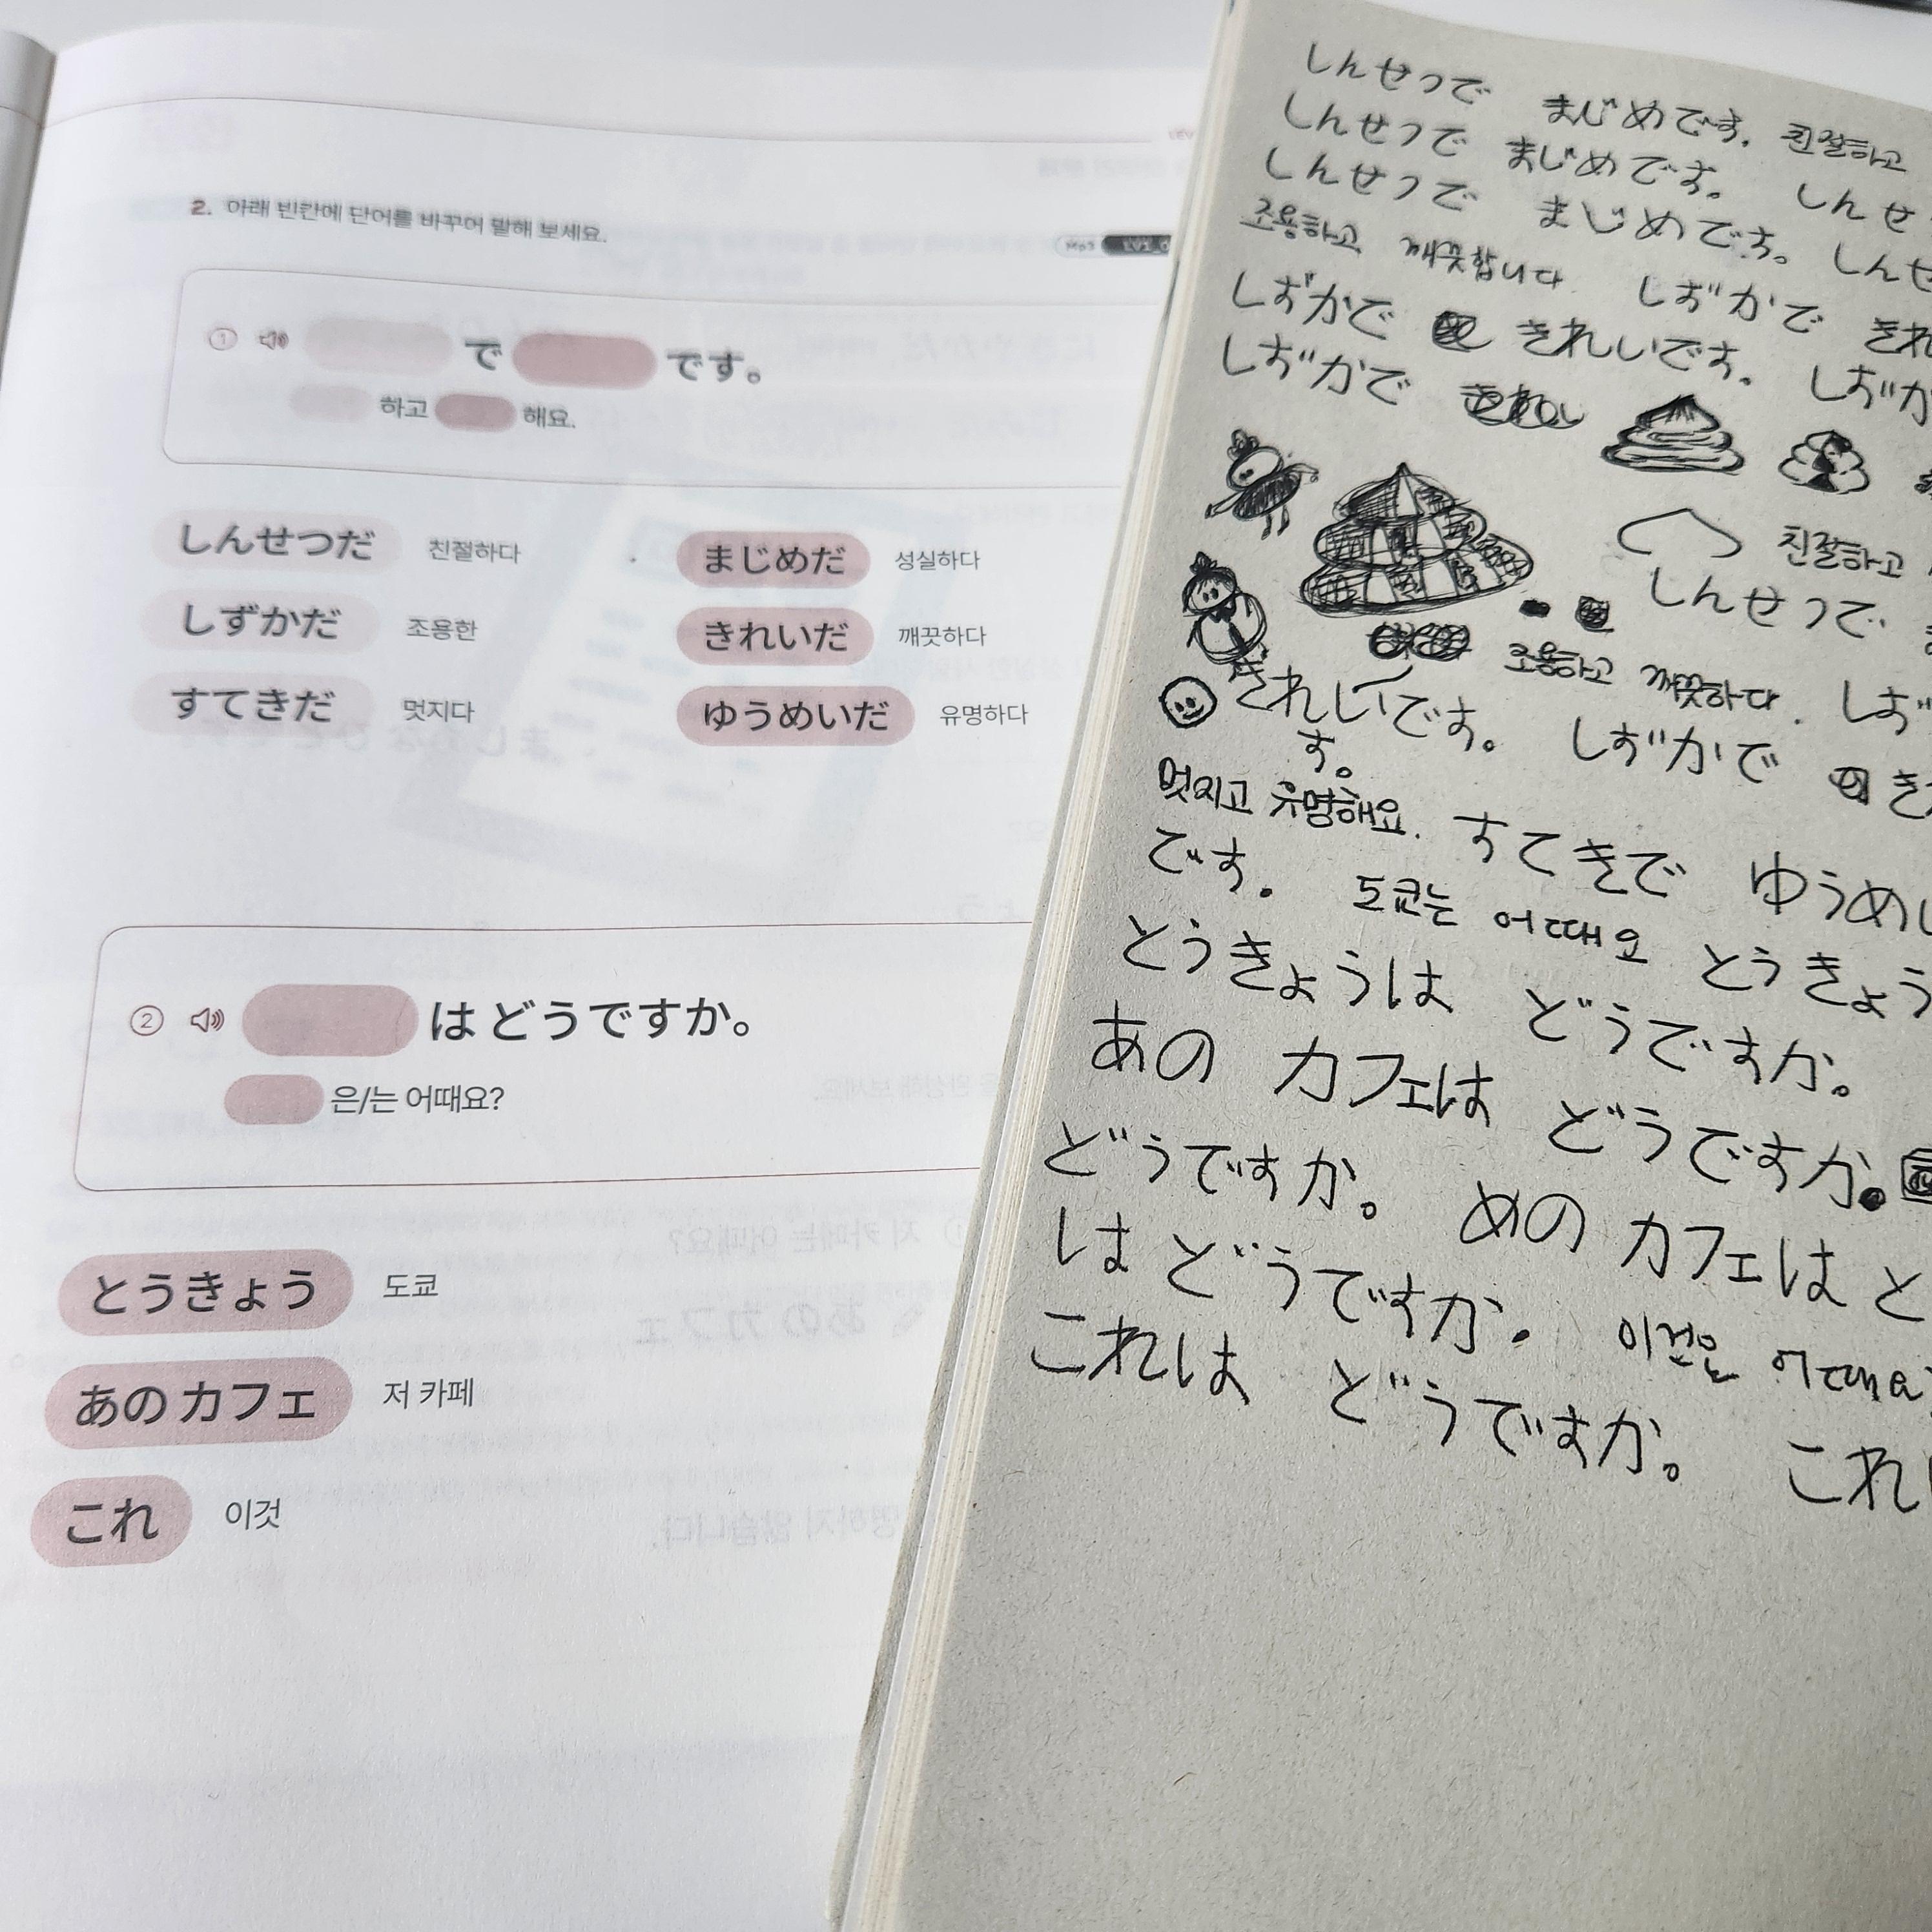 2. 아래 빈칸에 단어를 바꾸어 말해 보세요.
① で です。
하고 해요.
しんせつだ 친절하다 まじめだ 성실하다
しずかだ 조용한 きれいだ 깨끗하다
すてきだ 멋지다 ゆうめいだ 유명하다
② は どうですか。
은/는 어때요?
とうきょう 도쿄
あの カフェ 저 카페
これ 이것
しんせつで まじめです。 친절하고
しんせつで まじめです。 しんせ
しんせつで まじめです。 しんせ
조용하고 깨끗합니다 しずかで きれ
しずかで きれいです。 しずか
しずかで
친절하고
しんせつで
조용하고 깨끗하다. しず
きれいです。 しずかで き
す。
멋지고 유명해요. すてきで ゆうめい
です。 도쿄는 어때요 とうきょう
とうきょうは どうですか。
あの カフェは どうですか。
どうですか。 めの カフェは ど
は どうですか。 이것은 어때요
これは どうですか。 これ